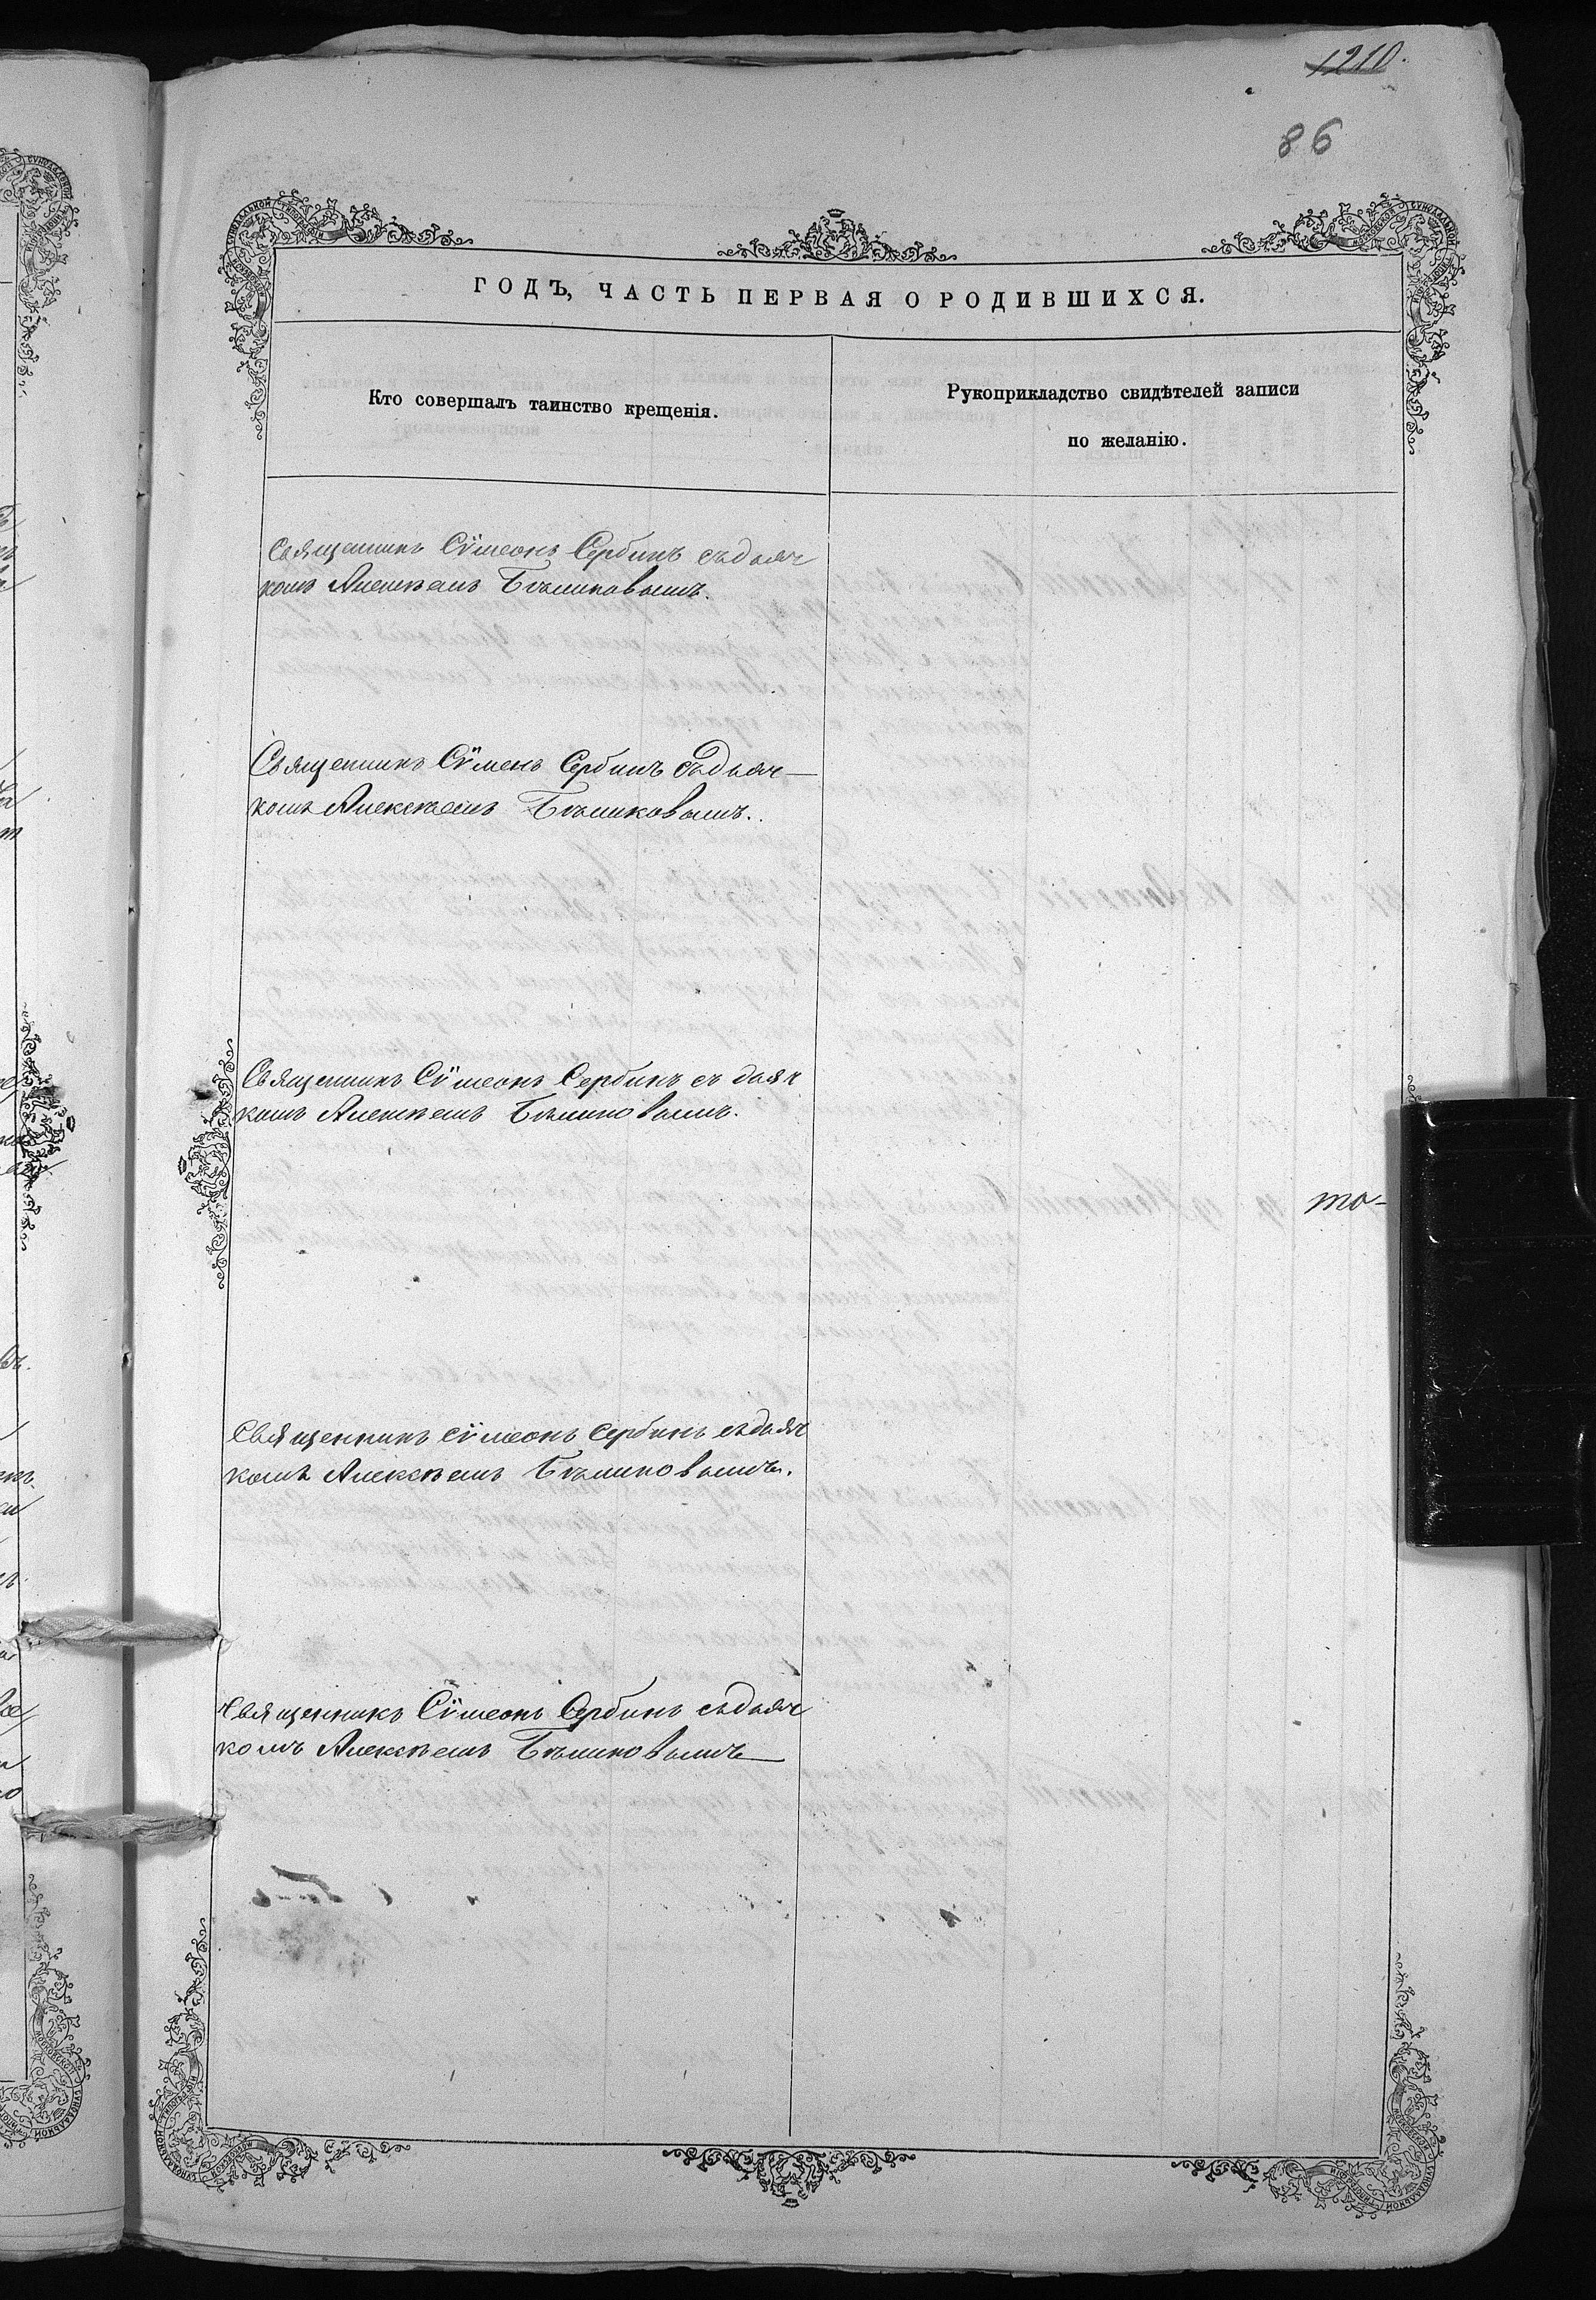 1210.
86
ГОДЪ, ЧАСТЬ ПЕРВАЯ О РОДИВШИХСЯ.
Кто совершалъ таинство крещенія.
Рукоприкладство свидѣтелей записи
по желанію.
Священникъ Сѵмеонъ Сербинъ съ дьяч
комъ Алексѣемъ Бѣликовымъ.
Священникъ Сѵменъ Сербинъ съ дьяч—
комъ Алексѣемъ Бѣликовымъ.
Священникъ Сѵмеонъ Сербинъ съ дьяч
комъ Алексѣемъ Бѣликовымъ.
то-
Священникъ Сѵмеонъ Сербинъ съ дьяч
комъ Алексѣемъ Бѣликовымъ.
Священникъ Сѵмеонъ Сербинъ съ дьяч
комъ Алексѣемъ Бѣликовымъ